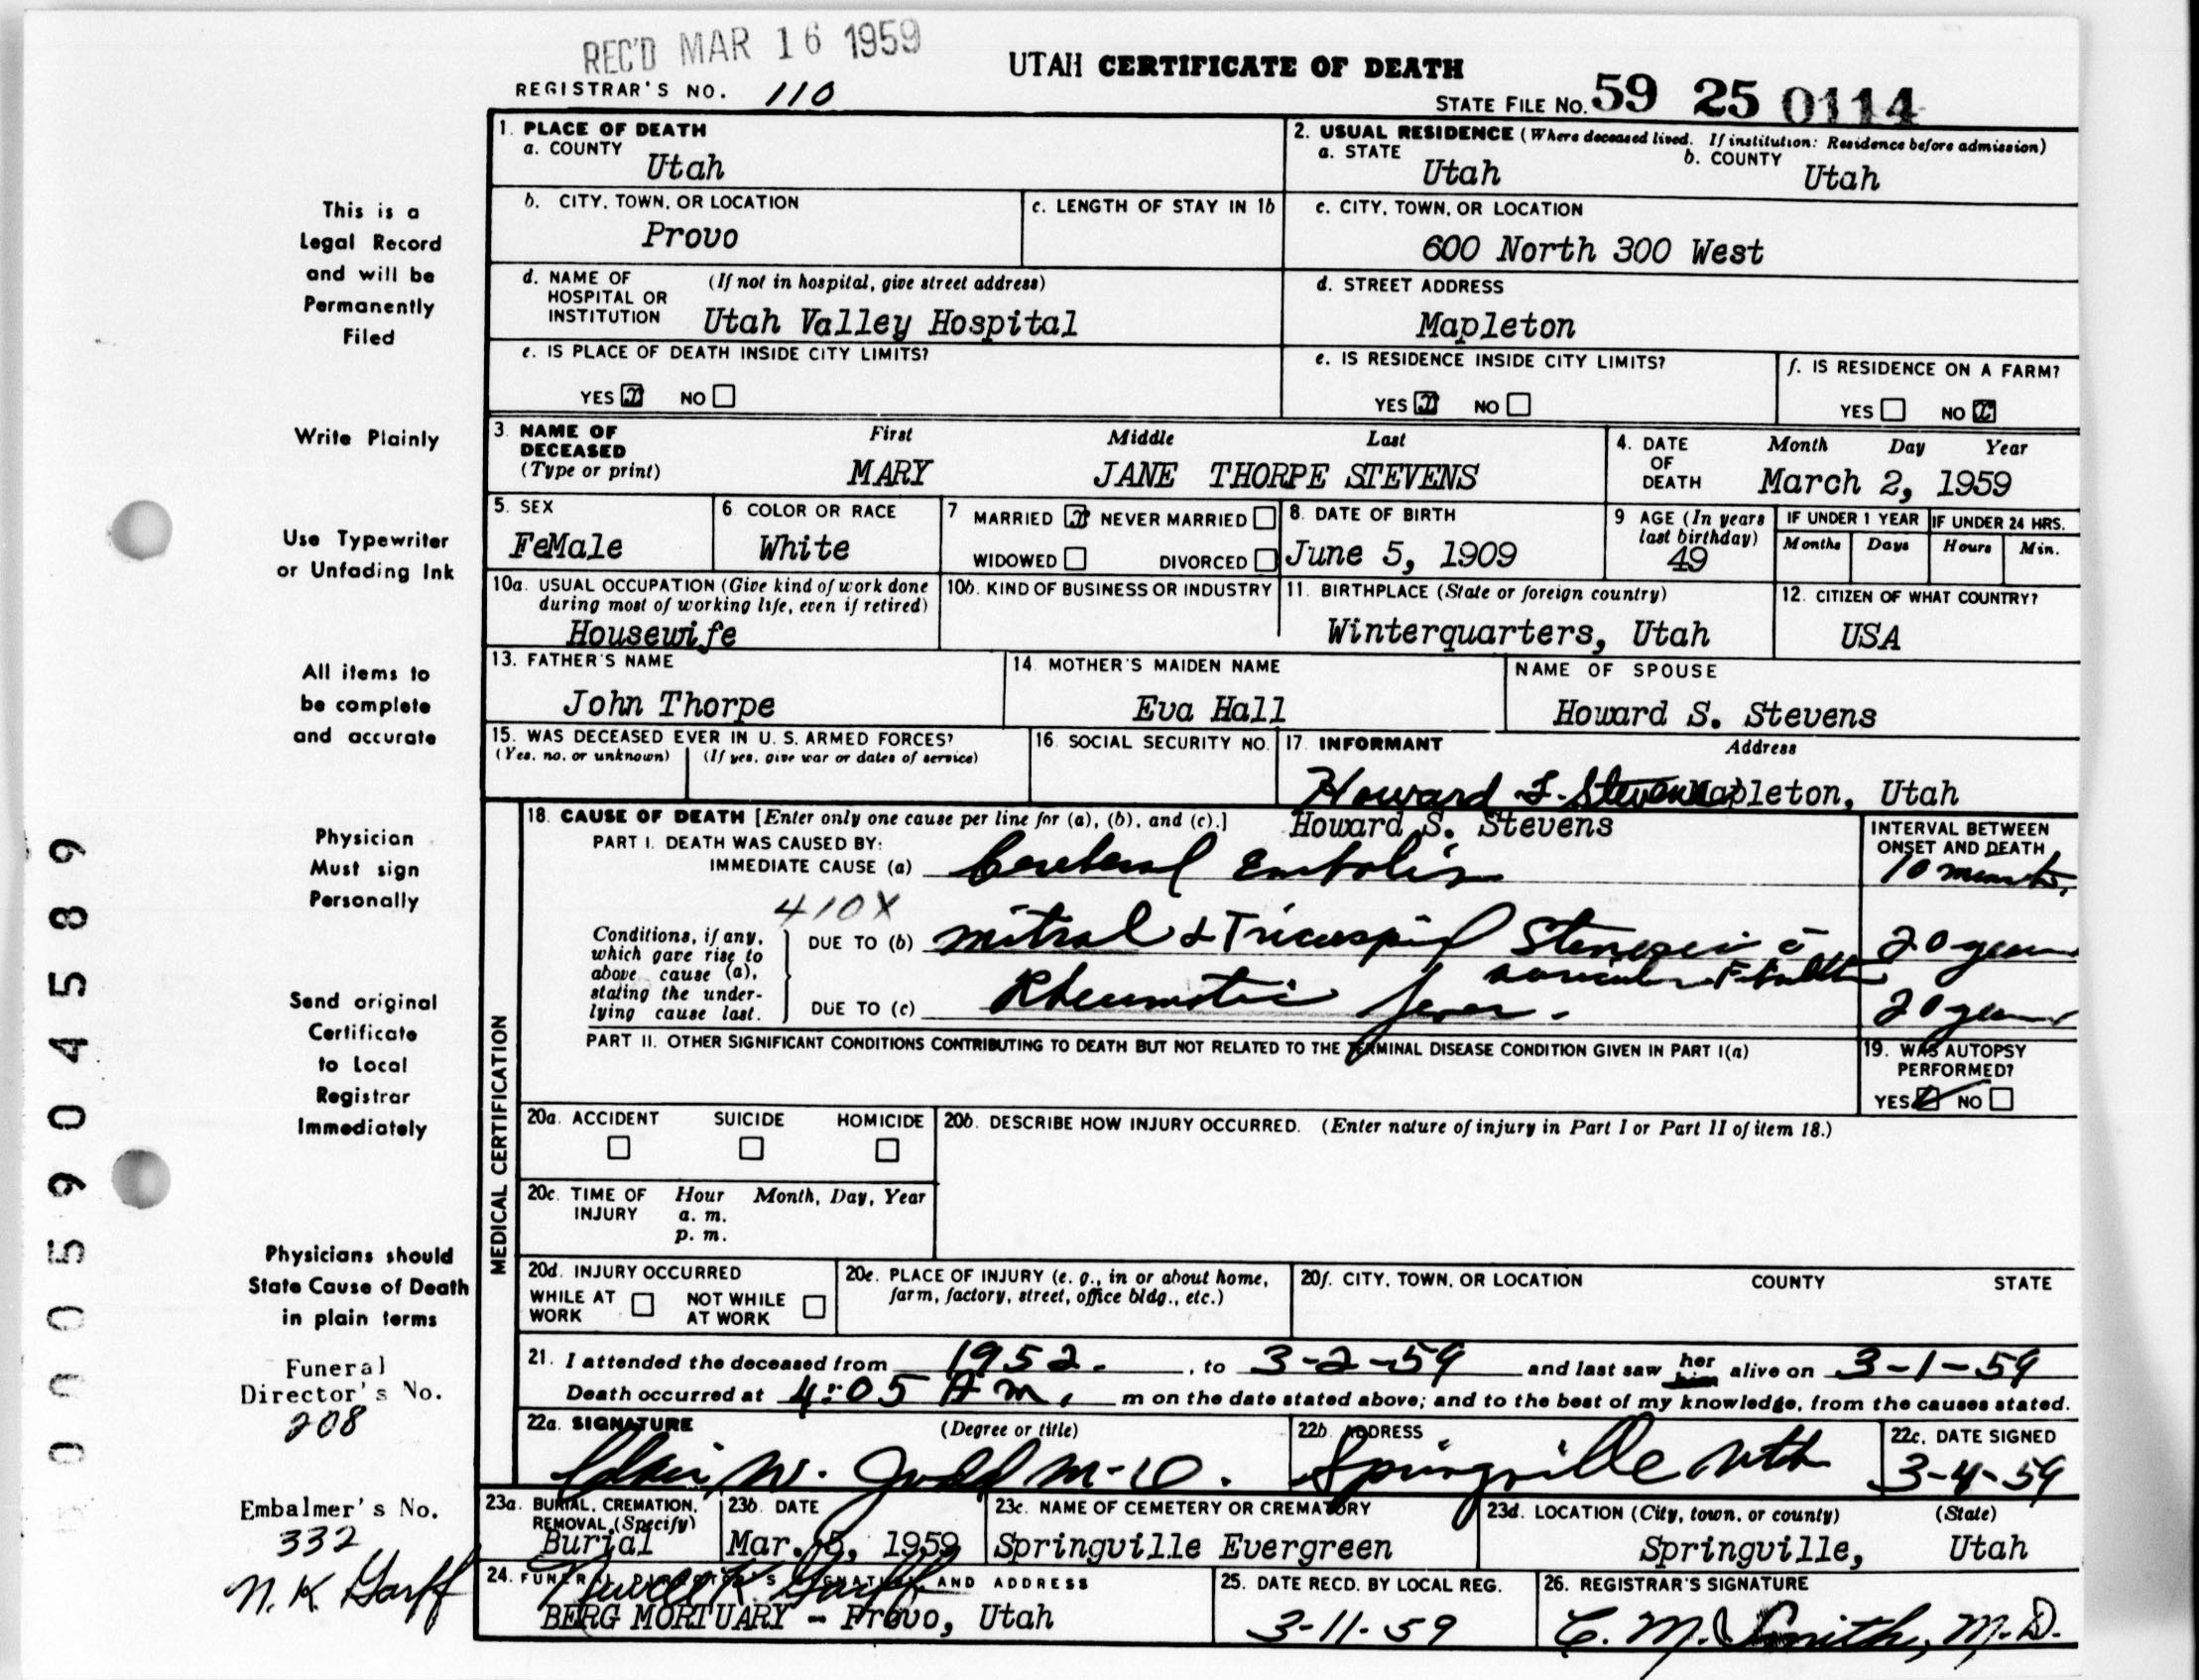 REC'D MAR 16 1959
UTAH CERTIFICATE OF DEATH
REGISTRAR'S NO. 110
STATE FILE NO. 59 25 0114
1. PLACE OF DEATH
a. COUNTY
Utah
2. USUAL RESIDENCE (Where deceased lived. If institution: Residence before admission)
a. STATE b. COUNTY
Utah Utah
b. CITY, TOWN, OR LOCATION
Provo
c. LENGTH OF STAY IN 1b
c. CITY, TOWN, OR LOCATION
600 North 300 West
d. NAME OF (If not in hospital, give street address)
HOSPITAL OR
INSTITUTION Utah Valley Hospital
d. STREET ADDRESS
Mapleton
e. IS PLACE OF DEATH INSIDE CITY LIMITS?
YES X NO
e. IS RESIDENCE INSIDE CITY LIMITS?
YES X NO
f. IS RESIDENCE ON A FARM?
YES NO X
3. NAME OF DECEASED
(Type or print)
First Middle Last
MARY JANE THORPE STEVENS
4. DATE OF DEATH
Month Day Year
March 2, 1959
5. SEX
FeMale
6. COLOR OR RACE
White
7. MARRIED X NEVER MARRIED
WIDOWED DIVORCED
8. DATE OF BIRTH
June 5, 1909
9 AGE (In years
last birthday)
49
IF UNDER 1 YEAR
Months Days
IF UNDER 24 HRS.
Hours Min.
10a. USUAL OCCUPATION (Give kind of work done
during most of working life, even if retired)
Housewife
10b. KIND OF BUSINESS OR INDUSTRY
11. BIRTHPLACE (State or foreign country)
Winterquarters, Utah
12. CITIZEN OF WHAT COUNTRY?
USA
13. FATHER'S NAME
John Thorpe
14. MOTHER'S MAIDEN NAME
Eva Hall
NAME OF SPOUSE
Howard S. Stevens
15. WAS DECEASED EVER IN U. S. ARMED FORCES?
(Yes, no, or unknown) (If yes, give war or dates of service)
16. SOCIAL SECURITY NO.
17. INFORMANT Address
Howard S. Stevens Mapleton, Utah
Howard S. Stevens
MEDICAL CERTIFICATION
18. CAUSE OF DEATH [Enter only one cause per line for (a), (b), and (c).]
INTERVAL BETWEEN
ONSET AND DEATH
PART I. DEATH WAS CAUSED BY:
IMMEDIATE CAUSE (a) Cerebral Embolism 10 minutes
410X
Conditions, if any,
which gave rise to
above cause (a),
stating the under-
lying cause last.
DUE TO (b) Mitral & Tricuspid Stenosis c̄ 20 years
auricular Fibrillation
DUE TO (c) Rheumatic fever. 20 years
PART II. OTHER SIGNIFICANT CONDITIONS CONTRIBUTING TO DEATH BUT NOT RELATED TO THE TERMINAL DISEASE CONDITION GIVEN IN PART I(a)
19. WAS AUTOPSY
PERFORMED?
YES NO
20a. ACCIDENT SUICIDE HOMICIDE
20b. DESCRIBE HOW INJURY OCCURRED. (Enter nature of injury in Part I or Part II of item 18.)
20c. TIME OF INJURY
Hour Month, Day, Year
a. m.
p. m.
20d. INJURY OCCURRED
WHILE AT WORK NOT WHILE AT WORK
20e. PLACE OF INJURY (e. g., in or about home,
farm, factory, street, office bldg., etc.)
20f. CITY, TOWN, OR LOCATION COUNTY STATE
21. I attended the deceased from 1952. , to 3-2-59 and last saw her him alive on 3-1-59
Death occurred at 4:05 A m. m on the date stated above; and to the best of my knowledge, from the causes stated.
22a. SIGNATURE (Degree or title)
W. Judd M.D.
22b. ADDRESS
Springville Utah
22c. DATE SIGNED
3-4-59
23a. BURIAL, CREMATION,
REMOVAL (Specify)
Burial
23b. DATE
Mar. 5, 1959
23c. NAME OF CEMETERY OR CREMATORY
Springville Evergreen
23d. LOCATION (City, town, or county) (State)
Springville, Utah
24. FUNERAL DIRECTOR'S SIGNATURE AND ADDRESS
K. Garff
BERG MORTUARY - Provo, Utah
25. DATE RECD. BY LOCAL REG.
3-11-59
26. REGISTRAR'S SIGNATURE
C. M. Smith, M.D.
This is a
Legal Record
and will be
Permanently
Filed
Write Plainly
Use Typewriter
or Unfading Ink
All items to
be complete
and accurate
Physician
Must sign
Personally
Send original
Certificate
to Local
Registrar
Immediately
Physicians should
State Cause of Death
in plain terms
Funeral
Director's No.
208
Embalmer's No.
332
N. K Garff
0005904589